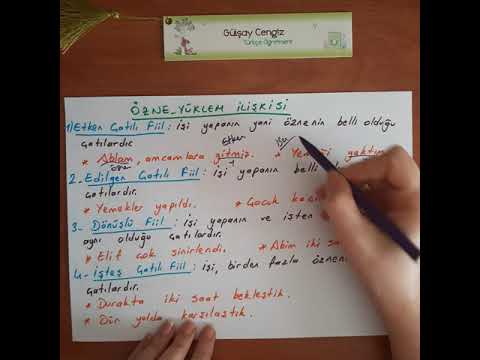 Gülşay Cengiz
Türkçe Öğretmeni
ÖZNE-YÜKLEM İLİŞKİSİ
1) Etken Çatılı Fiil: İşi yapanın yani öznenin belli olduğu
çatılardır. Etken
* Ablam, amcamlara gitmiş. * Yemeği yaktım
özne
2- Edilgen Çatılı Fiil: İşi yapanın belli
çatılardır.
* Yemekler yapıldı. * Çocuk
3- Dönüşlü Fiil: İşi yapanın ve işten
aynı olduğu çatılardır.
* Elif çok sinirlendi. * Abim iki
4- İşteş Çatılı Fiil: işi, birden fazla öznenin
çatılardır.
* Durakta iki saat bekleştik.
* Dün yolda karşılaştık.